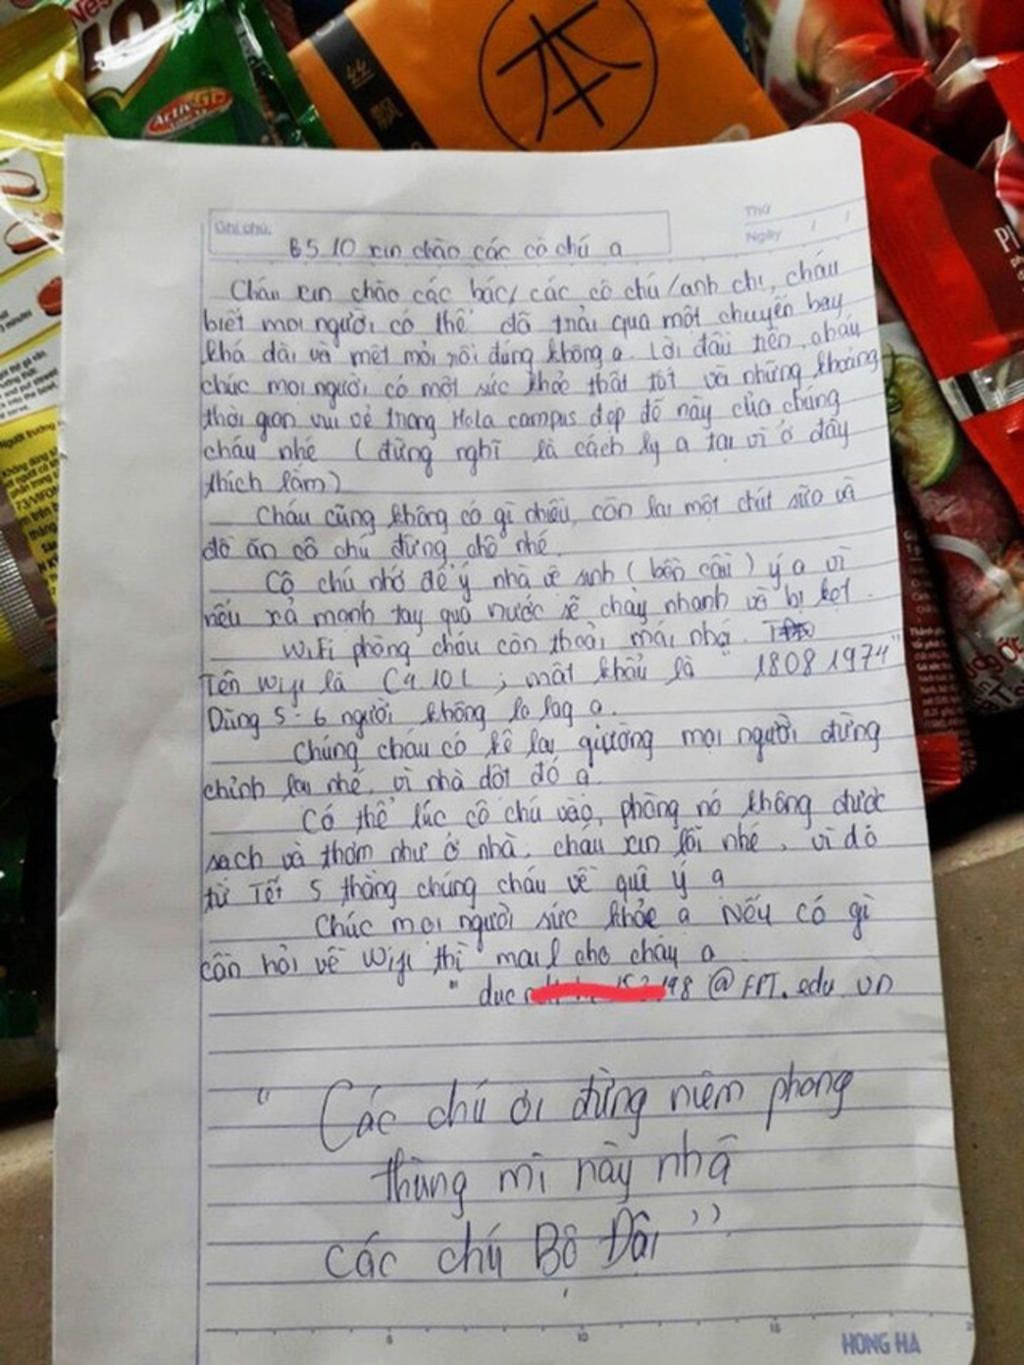 Nes
ACTIV-GO
本
PI
Ghi chú:
Thứ
Ngày / /
B5.10 xin chào các cô chú ạ
Cháu xin chào các bác/ các cô chú/anh chị, cháu
biết mọi người có thể đã trải qua một chuyến bay
khá dài và mệt mỏi rồi đúng không ạ. Lời đầu tiên, cháu
chúc mọi người có một sức khỏe thật tốt và những khoảng
thời gian vui vẻ trong Hola campus đẹp đẽ này của chúng
cháu nhé (đừng nghĩ là cách ly ạ tại vì ở đây
thích lắm)
Cháu cũng không có gì nhiều, còn lại một chút sữa và
đồ ăn cô chú đừng chê nhé.
Cô chú nhớ để ý nhà vệ sinh (bồn cầu) ý ạ vì
nếu xả mạnh tay quá nước sẽ chảy nhanh và bị kẹt.
Wifi phòng cháu còn thoải mái nhá.
Tên wifi là C410L; mật khẩu là "18081974"
Dùng 5-6 người không lo lag ạ.
Chúng cháu có kê lại giường mọi người đừng
chỉnh lại nhé, vì nhà dột đó ạ.
Có thể lúc cô chú vào, phòng nó không được
sạch và thơm như ở nhà, cháu xin lỗi nhé, vì đó
từ Tết 5 thằng chúng cháu về quê ý ạ
Chúc mọi người sức khỏe ạ Nếu có gì
cần hỏi về Wifi thì mail cho cháu ạ
" duc 198 @FPT.edu.vn
" Các chú ơi đừng niêm phong
thùng mì này nhá
các chú Bộ Đội "
5 10 15
HONG HA